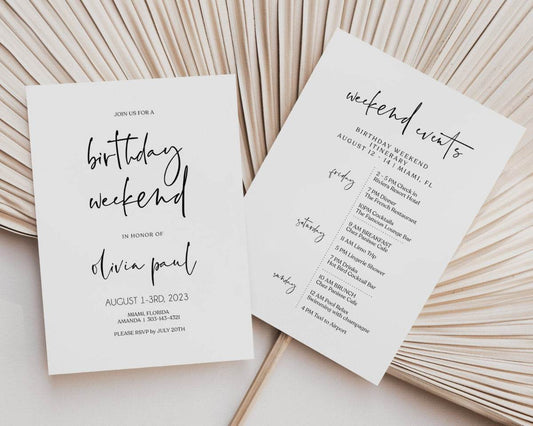 JOIN US FOR A
birthday
weekend
IN HONOR OF
olivia paul
AUGUST 1-3RD, 2023
MIAMI FLORIDA
AMANDA | 303-143-4321
PLEASE RSVP BY JULY 20TH
weekend events
BIRTHDAY WEEKEND
ITINERARY
AUGUST 12 - 14 | MIAMI, FL
friday
2 - 5 PM Check in
Riviera Resort Hotel
7 PM Dinner
The French Restaurant
10PM Cocktails
The Famous Lounge Bar
saturday
9 AM BREAKFAST
Chez Panisse Cafe
11 AM Limo Trip
5 PM Lingerie Shower
7 PM Drinks
Hot Bird Cocktail Bar
sunday
10 AM BRUNCH
Chez Panisse Cafe
12 AM Pool Relax
Swimming with champagne
4 PM Taxi to Airport